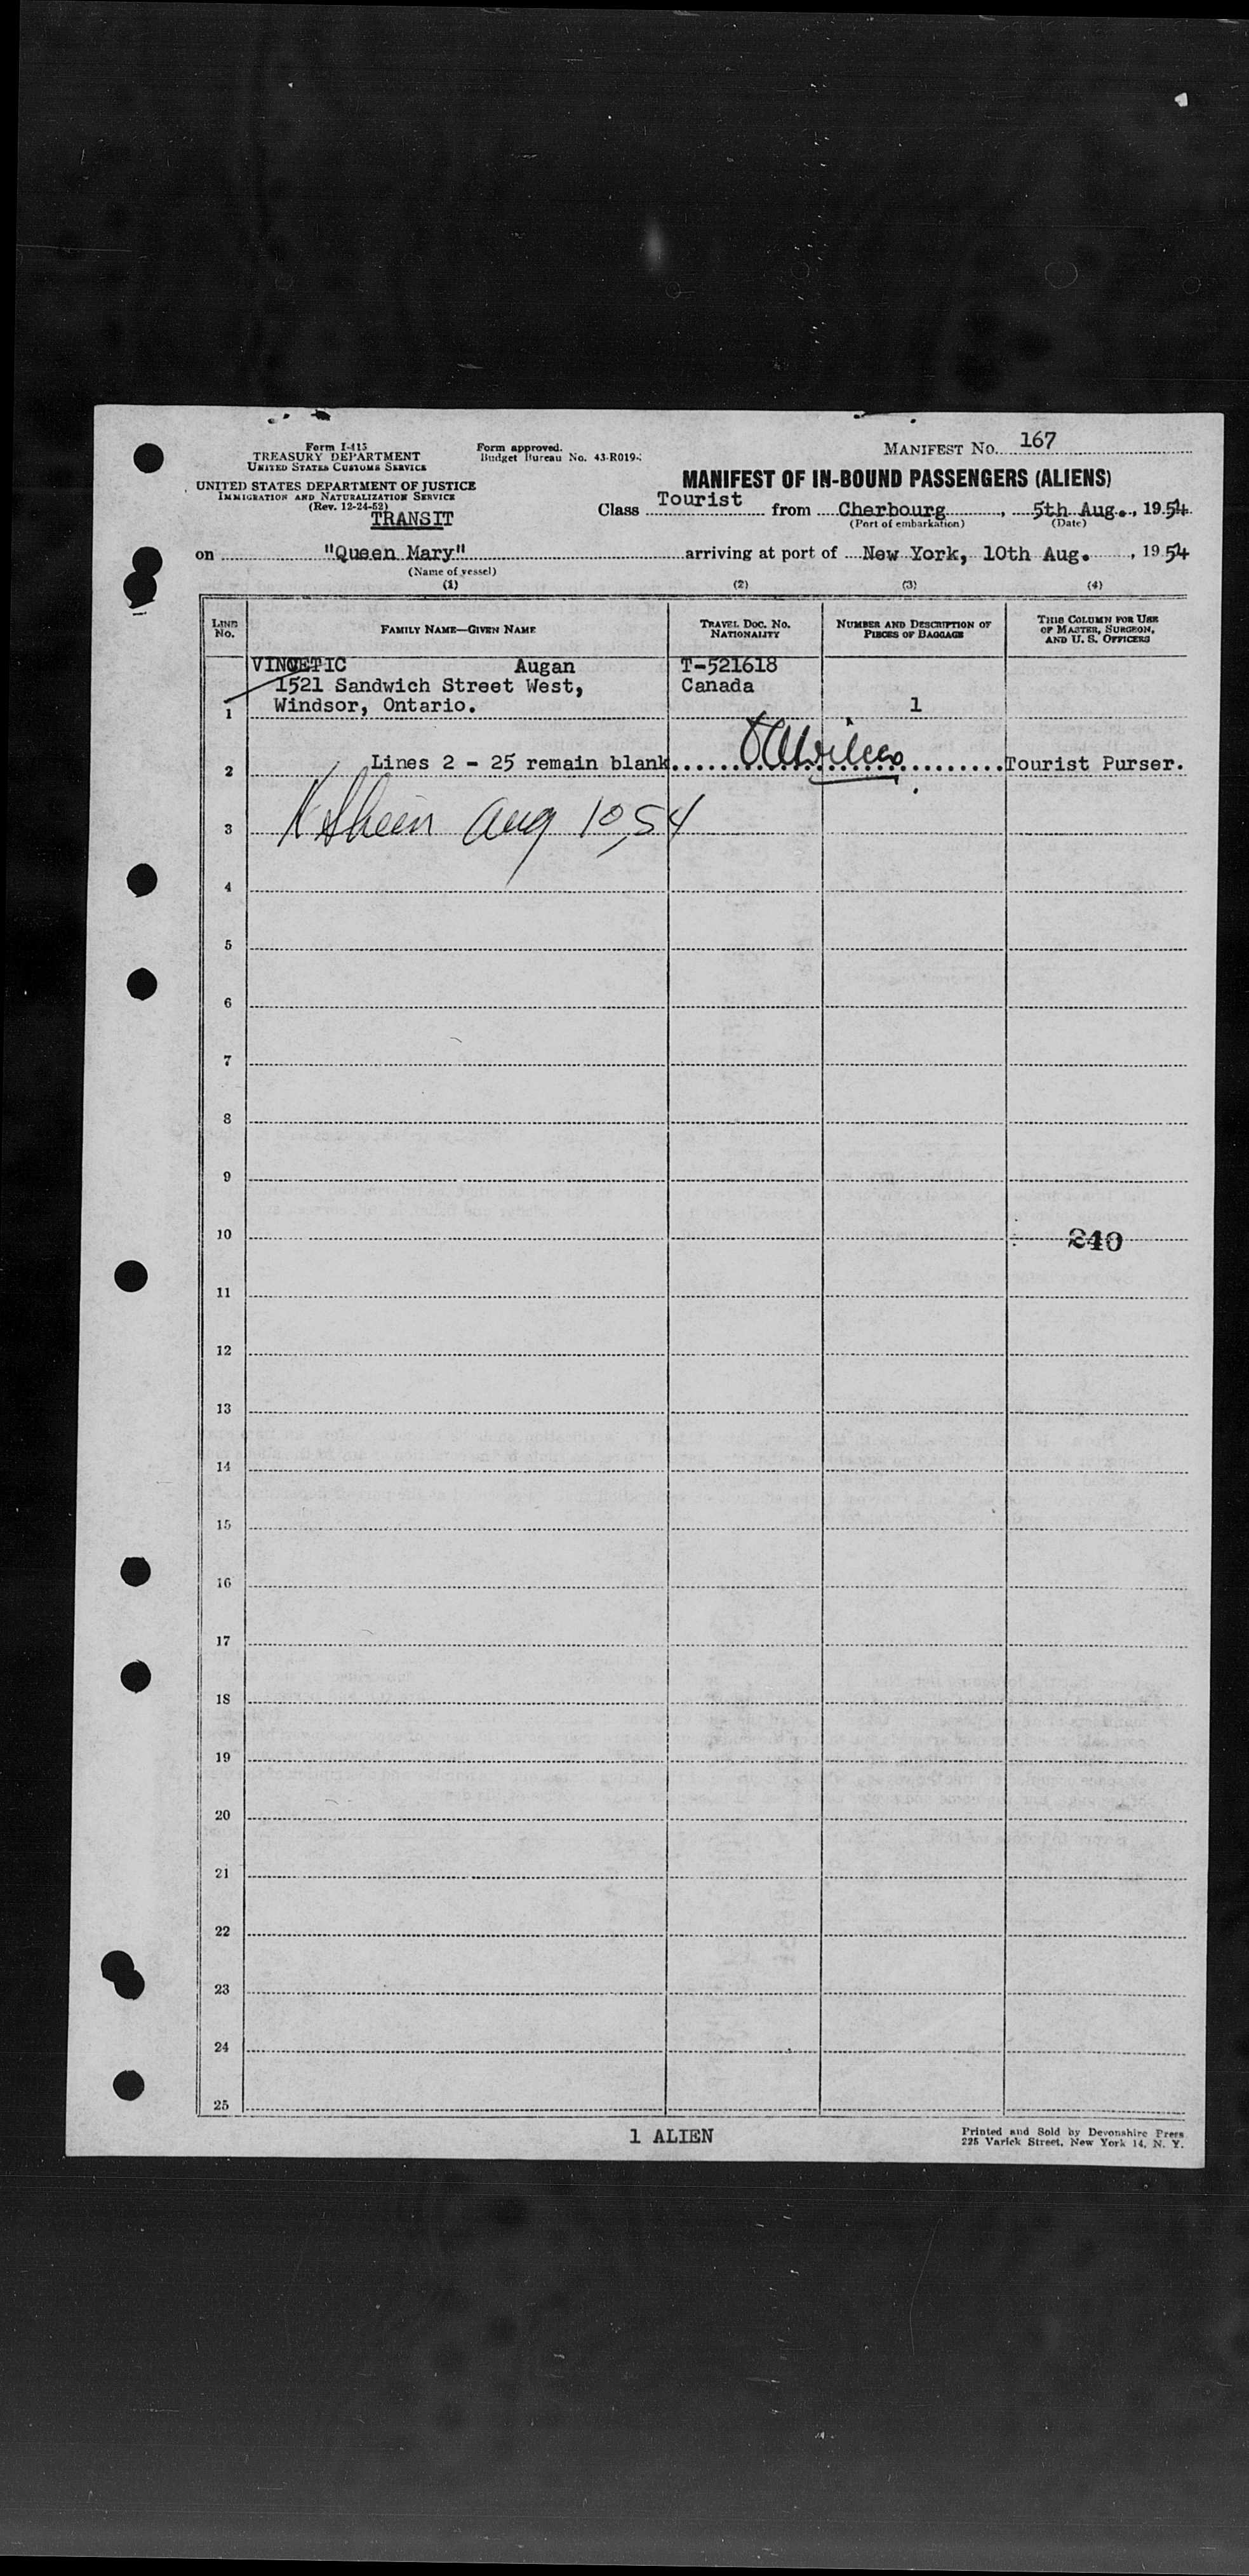 Form I-415
TREASURY DEPARTMENT
UNITED STATES CUSTOMS SERVICE
Form approved.
Budget Bureau No. 43-R019-
MANIFEST No. 167
UNITED STATES DEPARTMENT OF JUSTICE
IMMIGRATION AND NATURALIZATION SERVICE
(Rev. 12-24-52)
TRANSIT
MANIFEST OF IN-BOUND PASSENGERS (ALIENS)
Class Tourist from Cherbourg, 5th Aug., 1954
(Port of embarkation) (Date)
on "Queen Mary" arriving at port of New York, 10th Aug., 1954
(Name of vessel)
(1) (2) (3) (4)
LINE NO.
FAMILY NAME—GIVEN NAME
TRAVEL DOC. NO. NATIONALITY
NUMBER AND DESCRIPTION OF PIECES OF BAGGAGE
THIS COLUMN FOR USE OF MASTER, SURGEON, AND U. S. OFFICERS
Augan T-521618
1521 Sandwich Street West, Canada
1 Windsor, Ontario. 1
2 Lines 2 - 25 remain blank Tourist Purser.
3 Aug 10, 54
4
5
6
7
8
9
10 240
11
12
13
14
15
16
17
18
19
20
21
22
23
24
25
1 ALIEN
Printed and Sold by Devonshire Press
225 Varick Street, New York 14, N. Y.